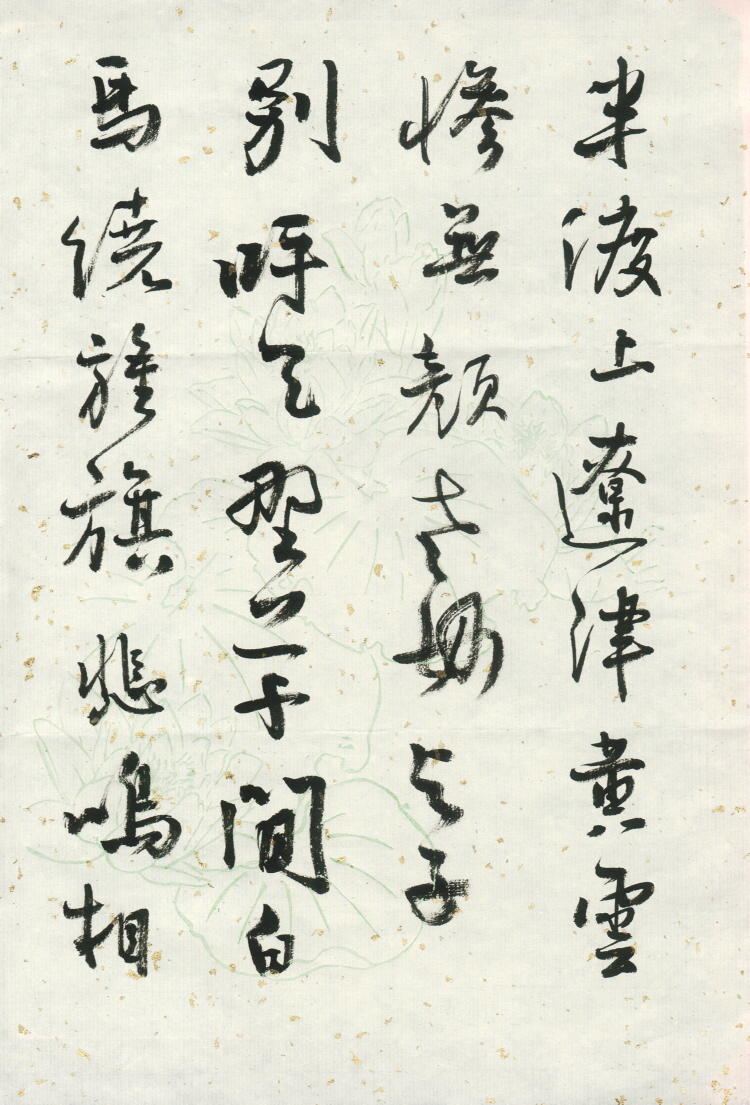 半渡上遼津黃雲
慘無顏老母与子
別呼天野草間白
馬繞旌旗悲鳴相